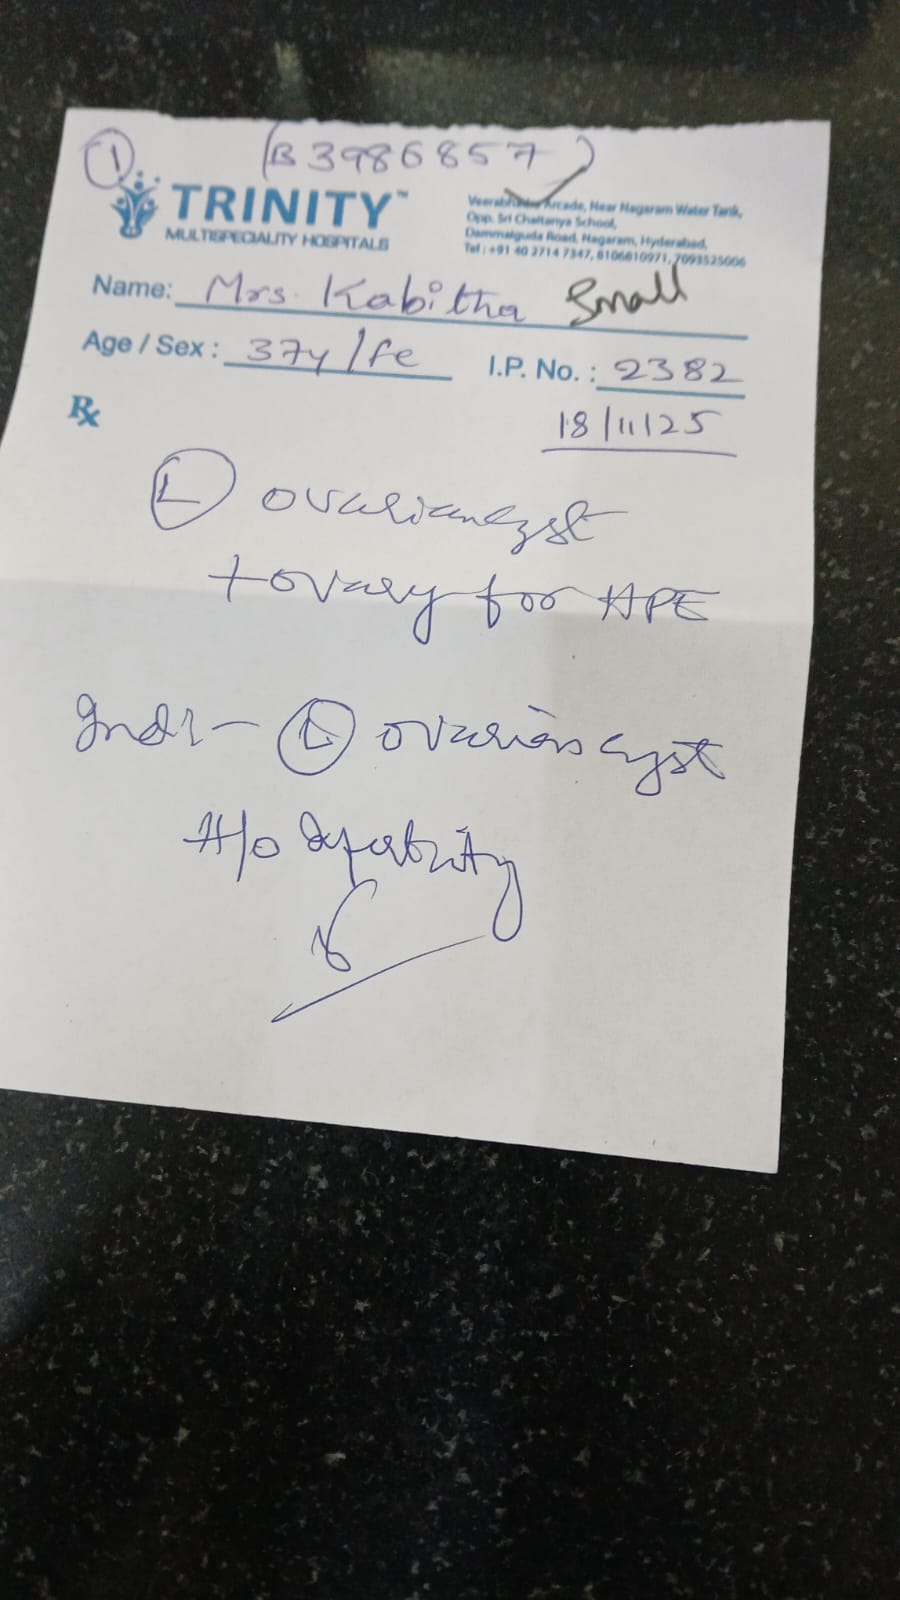 1
(B3986857)
TRINITY™
MULTISPECIALITY HOSPITALS
Veerabhadra Arcade, Near Nagaram Water Tank,
Opp. Sri Chaitanya School,
Dammaiguda Road, Nagaram, Hyderabad,
Tel : +91 40 2714 7347, 8106810971, 7093525006
Name: Mrs. Kabitha Small
Age / Sex : 37y/fe I.P. No. : 2382
Rx 18/11/25
L ovarian cyst
+ ovary for HPE
Indi - L ovarian cyst
H/o Infertility